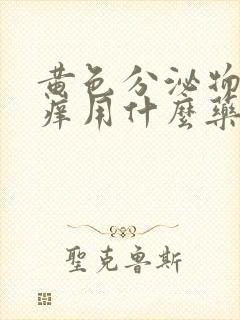 黄色分泌物
痒用什麼藥
聖克魯斯